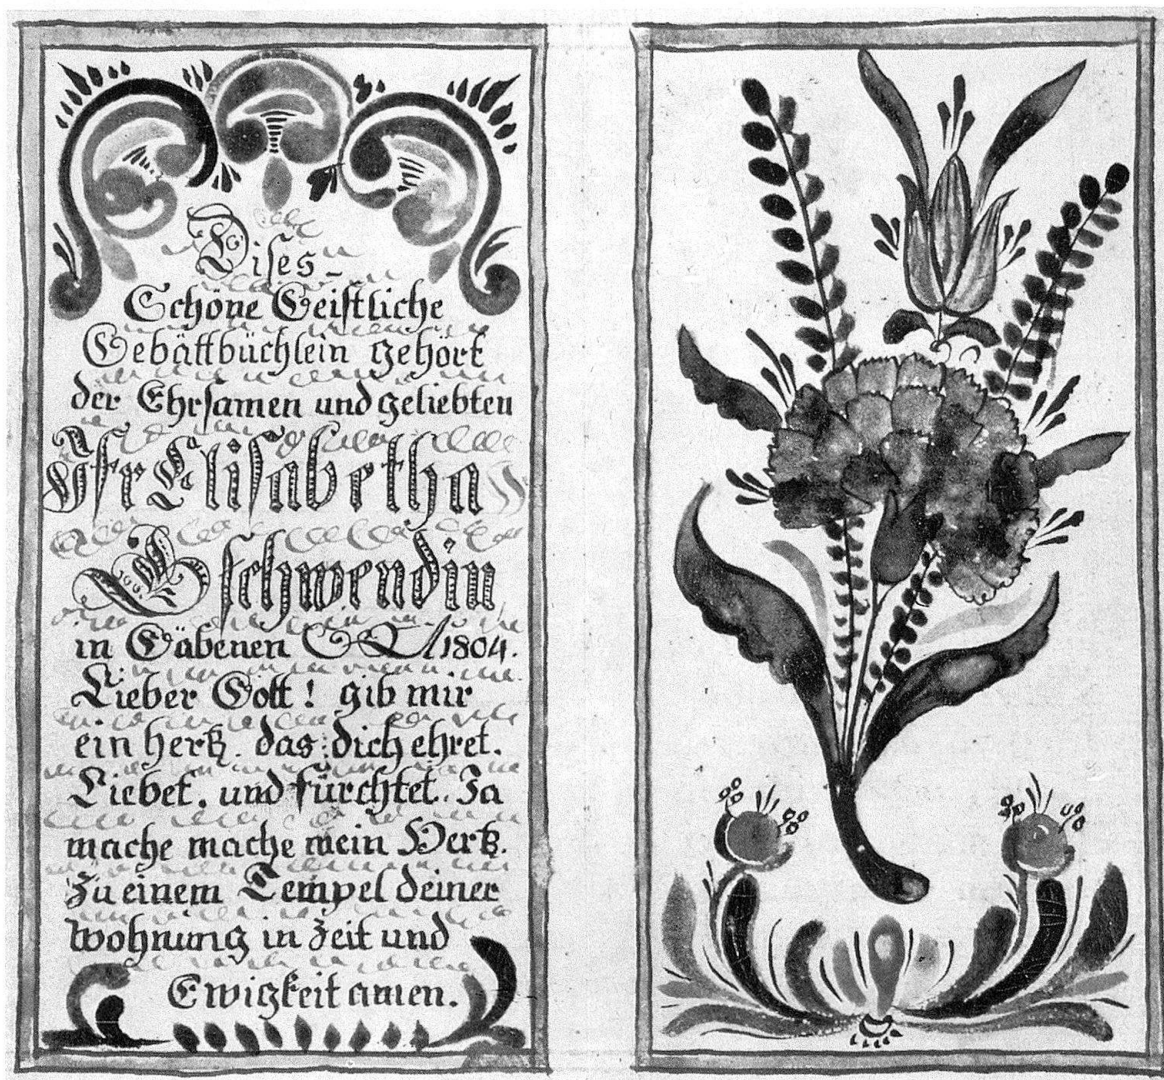 Dises -
Schöne Geistliche
Gebättbüchlein gehört
der Ehrsamen und geliebten
Jfr Elisabetha
Gschwendin
in Gäbenen 1804.
Lieber Gott! gib mir
ein hertz. das: dich ehret.
Liebet. und fürchtet. Ja
mache mache mein Hertz.
Zu einem Tempel deiner
wohnung in Zeit und
Ewigkeit amen.